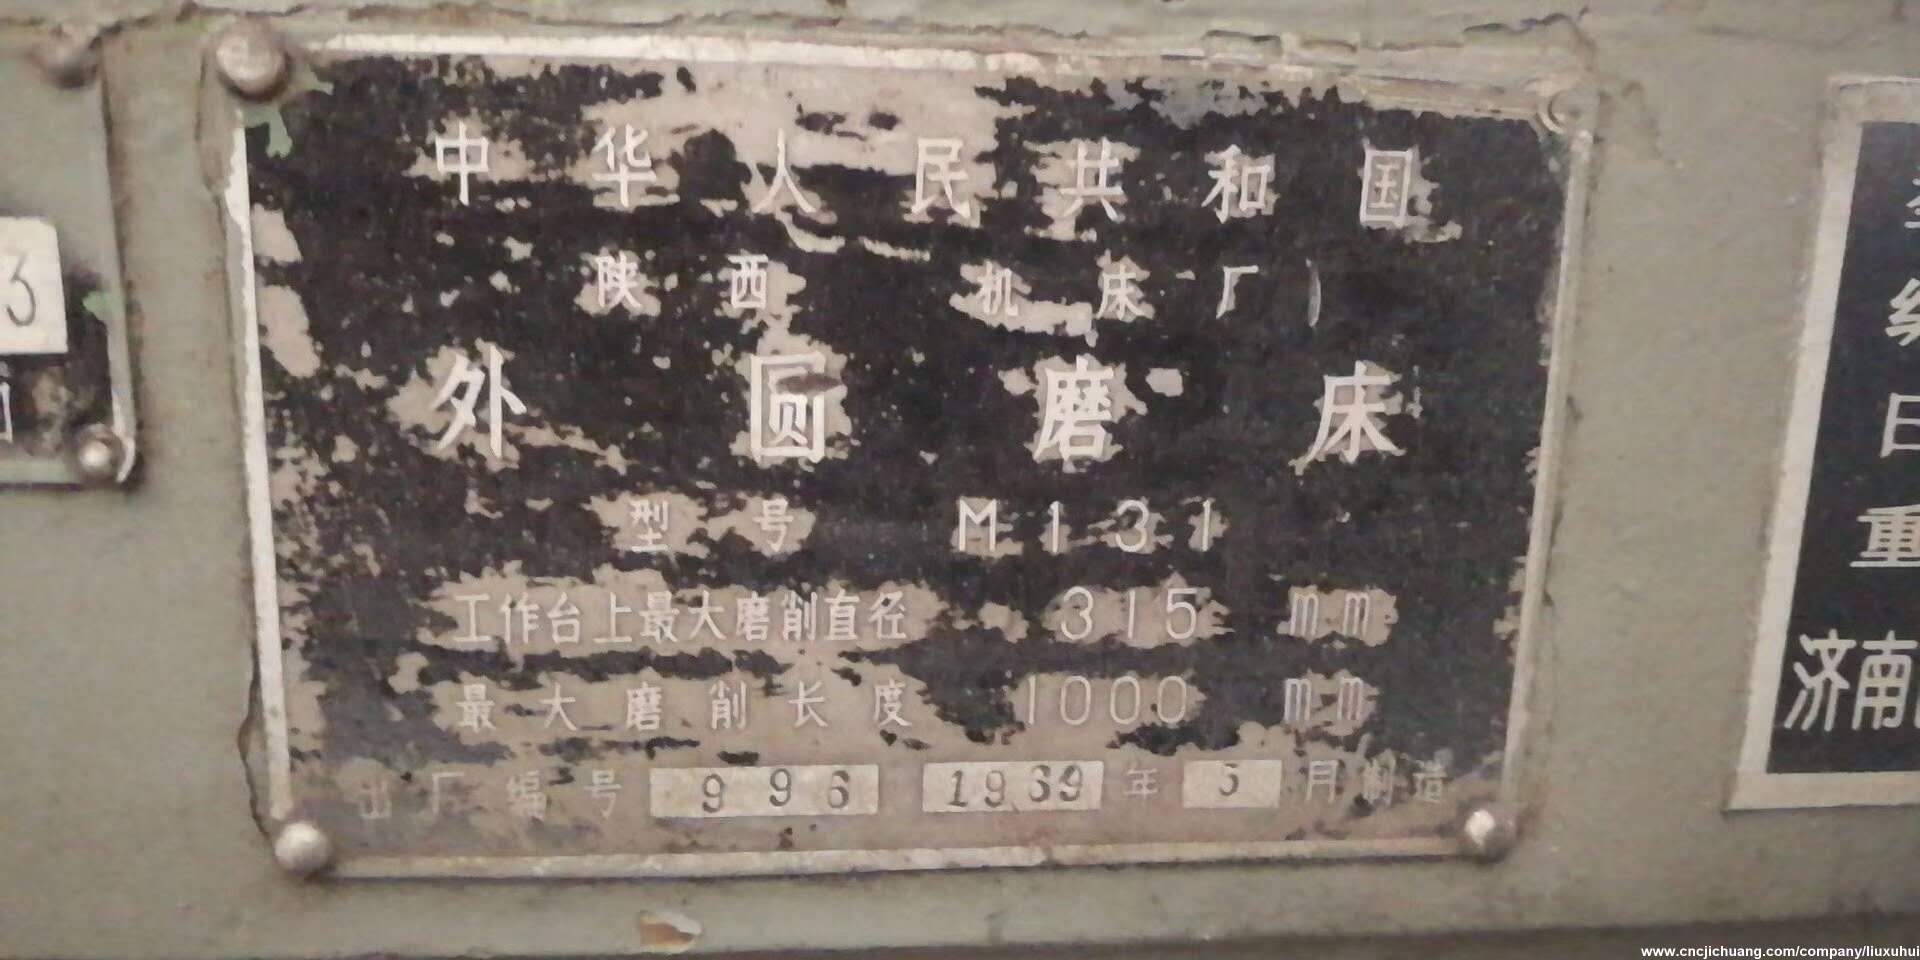 中华人民共和国
陕西机床厂
外圆磨床
型号 M131
工作台上最大磨削直径 315 mm
最大磨削长度 1000 mm
出厂编号 996 1989年5月制造
3
日
重
济南
www.cncjichuang.com/company/liuxuhui